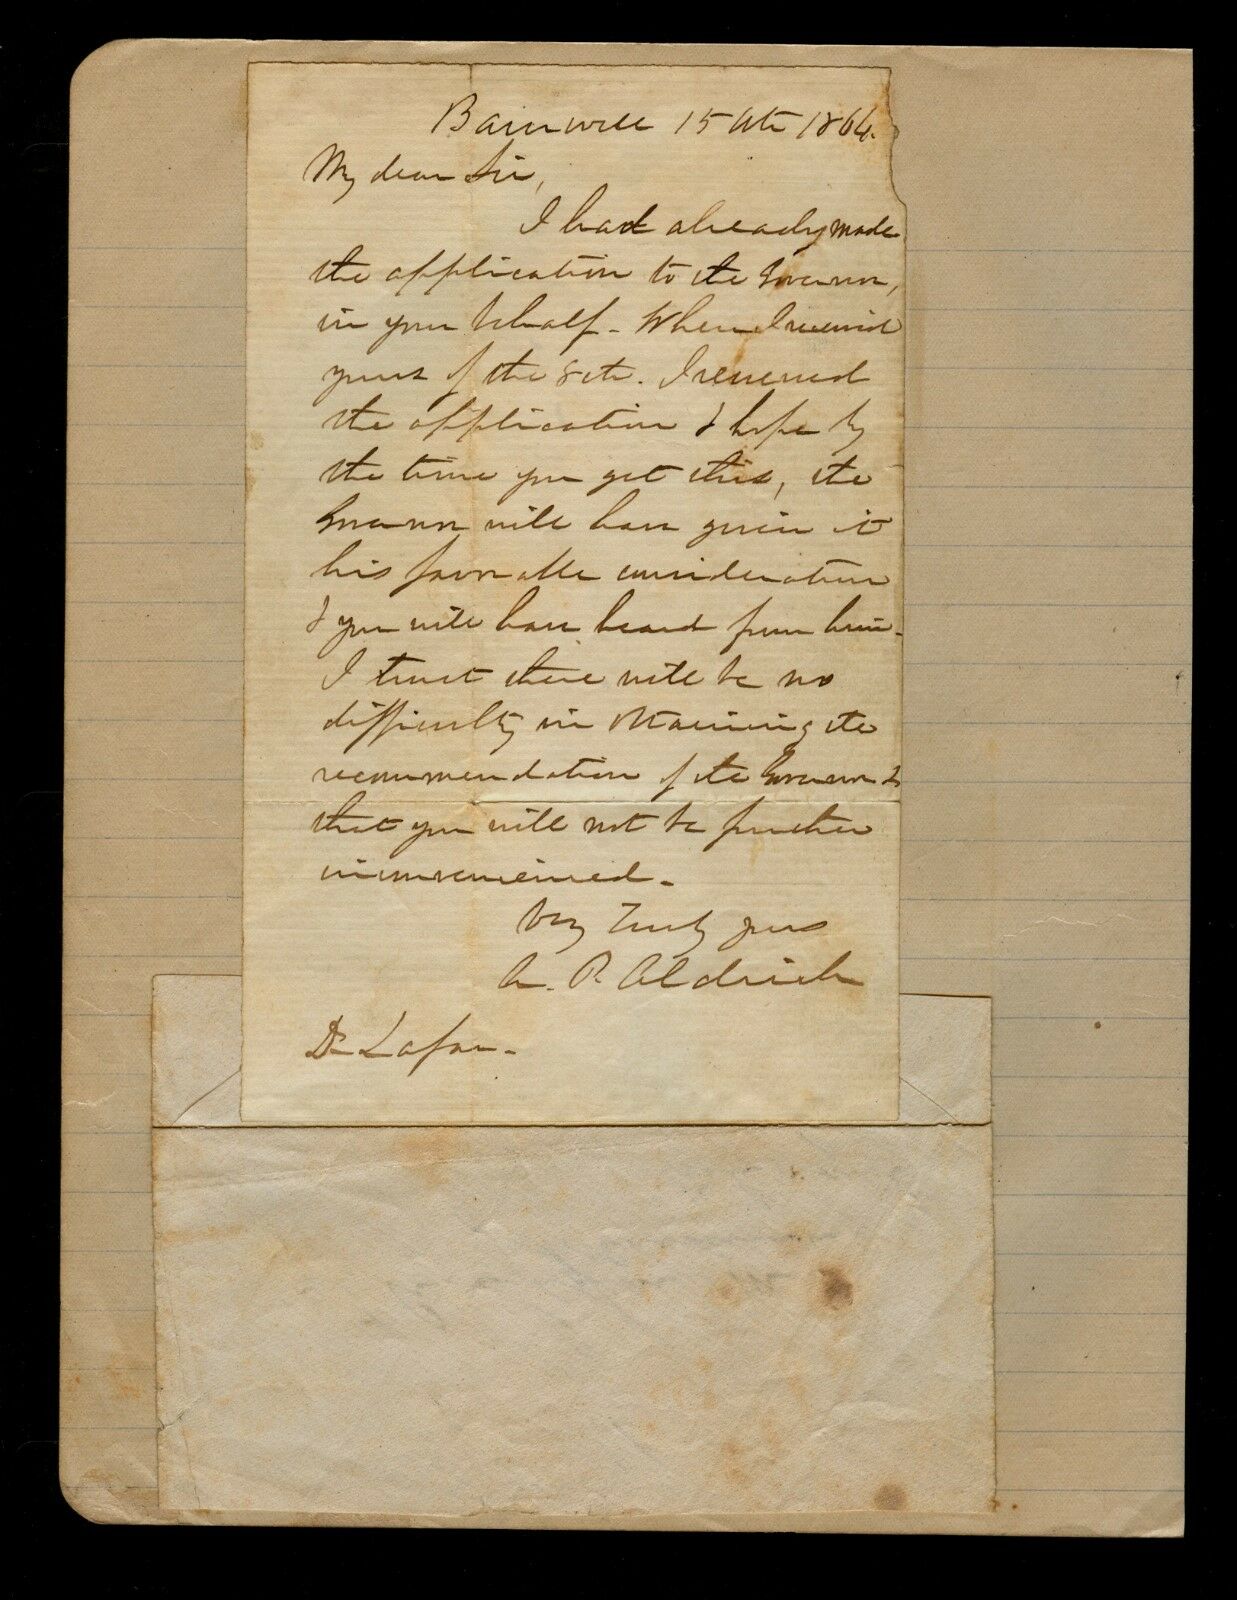 Barnwell 15 Oct 1864.
My dear Sir,
I had already made
the application to the Governor,
in your behalf - When I received
yours of the 8th. I renewed
the application & hope by
the time you get this, the
Governor will have given it
his favorable consideration
& you will have heard from him -
I trust there will be no
difficulty in obtaining the
recommendation of the Governor &
that you will not be further
inconvenienced -
Very Truly yours
A. P. Aldrich
Dr Lafar -